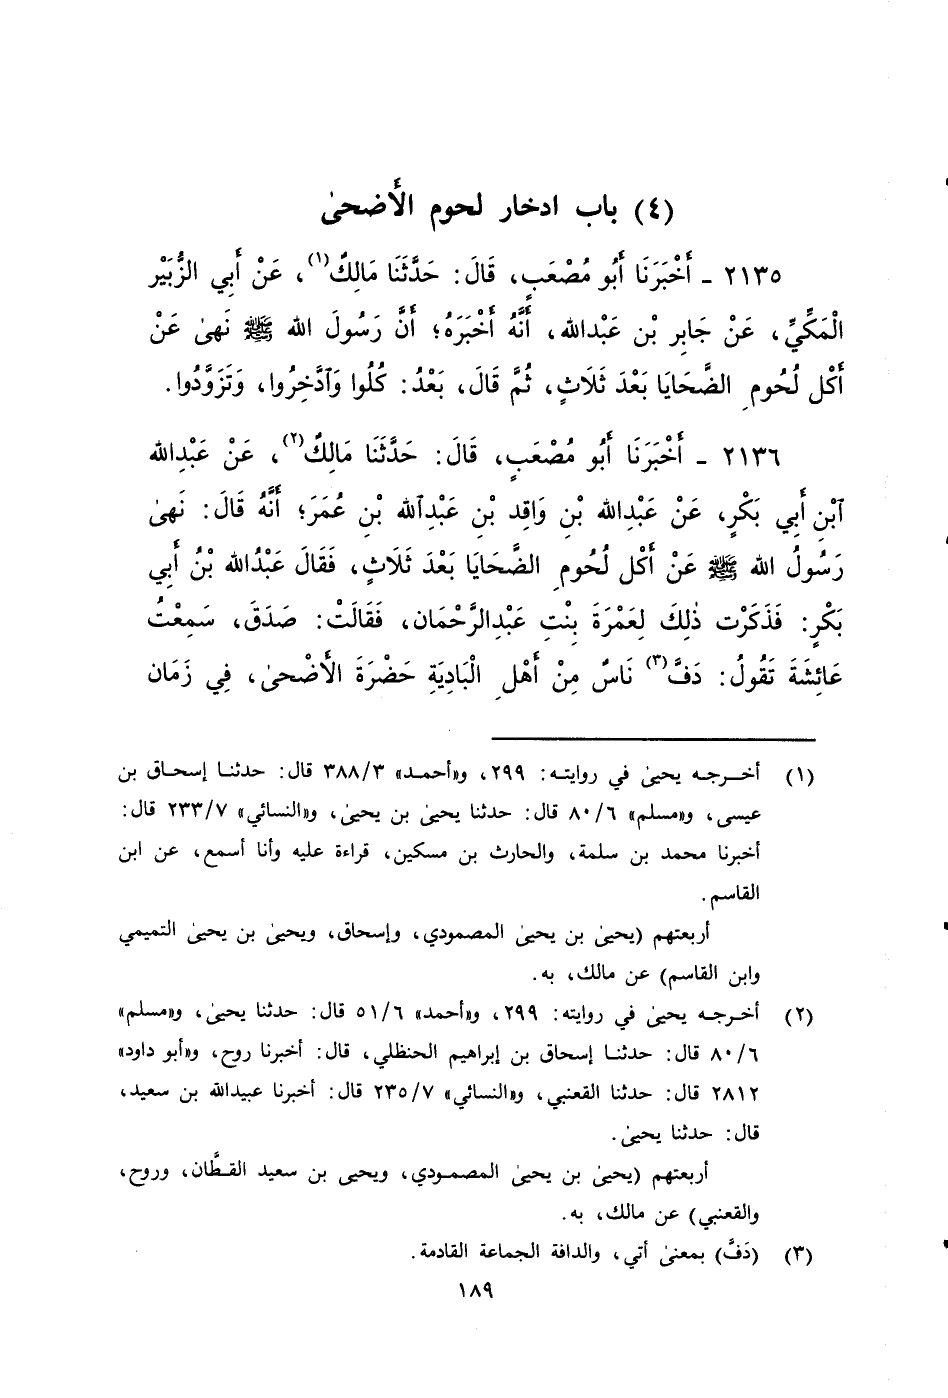 (٤) باب ادخار لحوم الأضحىٰ
٢١٣٥ ـ أَخْبَرَنَا أَبُو مُصْعَبٍ، قَالَ: حَدَّثَنَا مَالِكٌ(١)، عَنْ أَبِي الزُّبَيْرِ
الْمَكِّيِّ، عَنْ جَابِرِ بْنِ عَبْدِالله، أَنَّهُ أَخْبَرَهُ؛ أَنَّ رَسُولَ الله ﷺ نَهىٰ عَنْ
أَكْلِ لُحُومِ الضَّحَايَا بَعْدَ ثَلَاثٍ، ثُمَّ قَالَ، بَعْدُ: كُلُوا وَآدَّخِرُوا، وَتَزَوَّدُوا.
٢١٣٦ ـ أَخْبَرَنَا أَبُو مُصْعَبٍ، قَالَ: حَدَّثَنَا مَالِكٌ(٢)، عَنْ عَبْدِالله
آبْنِ أَبِي بَكْرٍ، عَنْ عَبْدِالله بْنِ وَاقِدِ بْنِ عَبْدِآلله بْنِ عُمَرَ؛ أَنَّهُ قَالَ: نَهىٰ
رَسُولُ الله ﷺ عَنْ أَكْلِ لُحُومِ الضَّحَايَا بَعْدَ ثَلَاثٍ، فَقَالَ عَبْدُالله بْنُ أَبِي
بَكْرٍ: فَذَكَرْت ذٰلِكَ لِعَمْرَةَ بِنْتِ عَبْدِالرَّحْمَان، فَقَالَتْ: صَدَقَ، سَمِعْتُ
عَائِشَةَ تَقُولُ: دَفَّ(٣) نَاسٌ مِنْ أَهْلِ الْبَادِيَةِ حَضْرَةَ الأَضْحىٰ، فِي زَمَان
(١) أخرجه يحيىٰ في روايته: ٢٩٩، و«أحمد» ٣٨٨/٣ قال: حدثنا إسحاق بن
عيسى، و«مسلم» ٨٠/٦ قال: حدثنا يحيىٰ بن يحيىٰ، و«النسائي» ٢٣٣/٧ قال:
أخبرنا محمد بن سلمة، والحارث بن مسكين، قراءة عليه وأنا أسمع، عن ابن
القاسم.
أربعتهم (يحيىٰ بن يحيىٰ المصمودي، وإسحاق، ويحيىٰ بن يحيىٰ التميمي
وابن القاسم) عن مالك، به.
(٢) أخرجه يحيىٰ في روايته: ٢٩٩، و«أحمد» ٥١/٦ قال: حدثنا يحيىٰ، و«مسلم»
٨٠/٦ قال: حدثنا إسحاق بن إبراهيم الحنظلي، قال: أخبرنا روح، و«أبو داود»
٢٨١٢ قال: حدثنا القعنبي، و«النسائي» ٢٣٥/٧ قال: أخبرنا عبيدالله بن سعيد،
قال: حدثنا يحيىٰ.
أربعتهم (يحيىٰ بن يحيىٰ المصمودي، ويحيى بن سعيد القطَّان، وروح،
والقعنبي) عن مالك، به.
(٣) (دَفَّ) بمعنىٰ أتي، والدافة الجماعة القادمة.
١٨٩